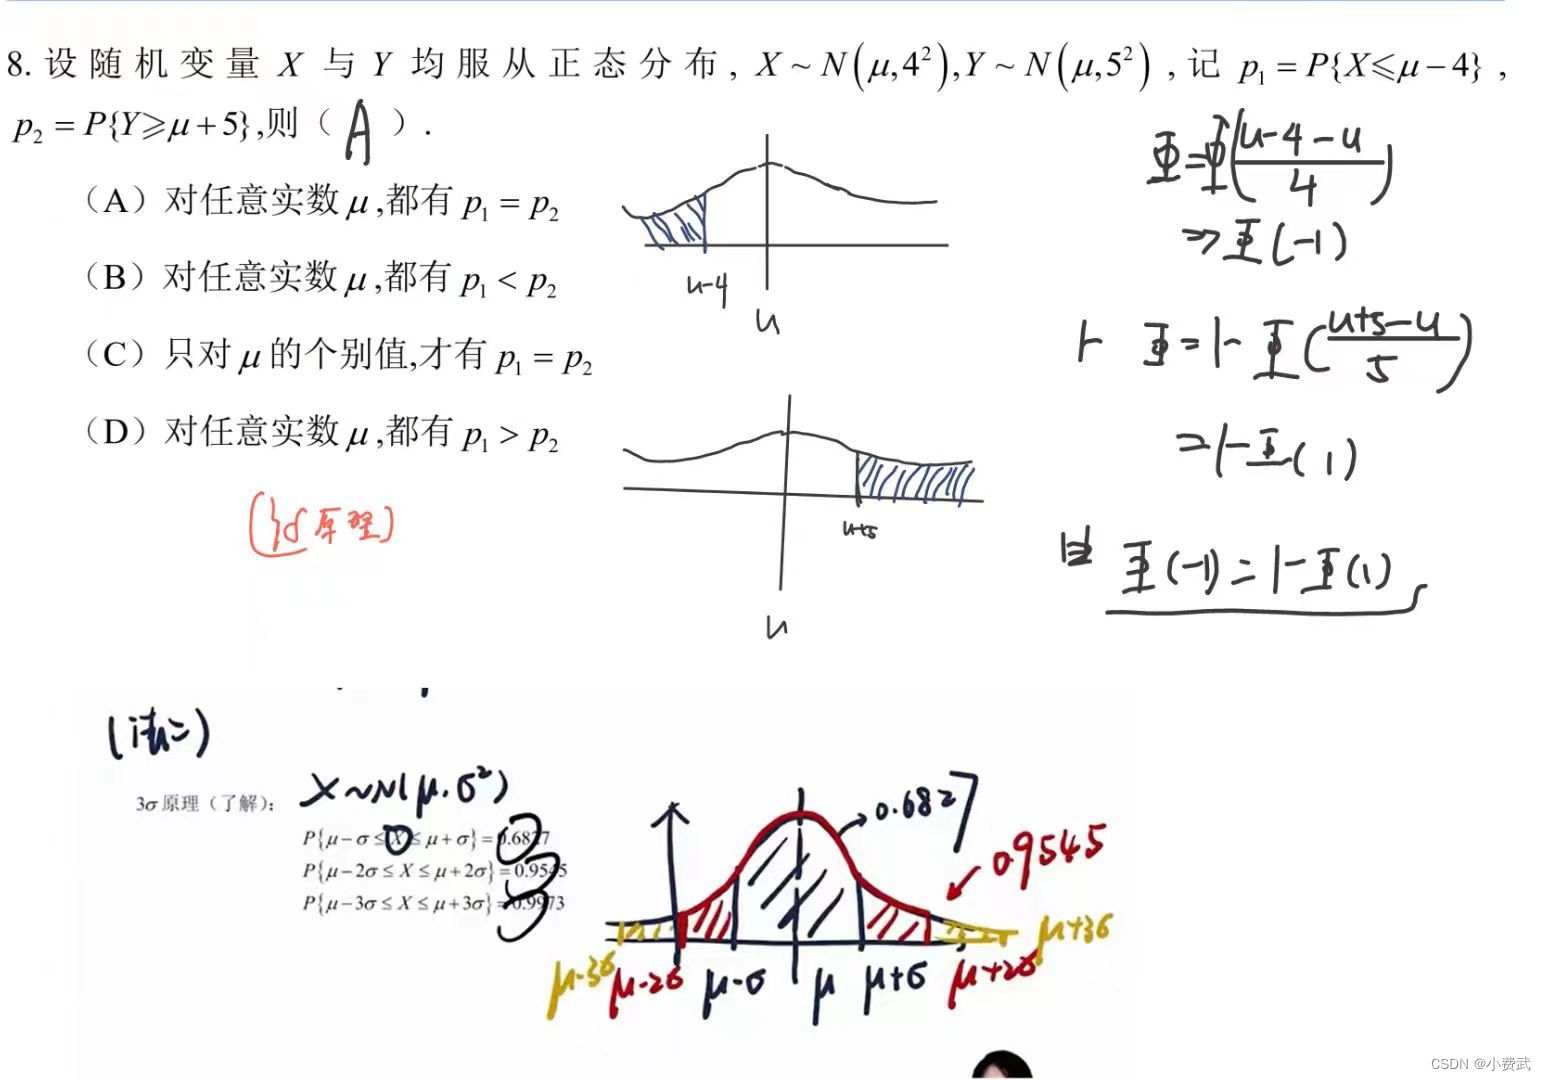 8. 设随机变量 X 与 Y 均服从正态分布, X ~ N(μ,4²),Y ~ N(μ,5²) ,记 p₁ = P{X⩽μ−4} ,
p₂ = P{Y⩾μ+5},则（ A ）.
（A）对任意实数 μ,都有 p₁ = p₂
（B）对任意实数 μ,都有 p₁ < p₂
（C）只对 μ 的个别值,才有 p₁ = p₂
（D）对任意实数 μ,都有 p₁ > p₂
u-4
u
u+5
u
(3σ原理)
Φ=Φ(u-4-u/4)
⇒Φ(-1)
1- Φ=1-Φ(u+5-u/5)
=1-Φ(1)
由 Φ(-1)=1-Φ(1)
(法二)
3σ原理（了解）:
X~N(μ.σ²)
P{μ−σ≤X≤μ+σ}=0.6827
P{μ−2σ≤X≤μ+2σ}=0.9545
P{μ−3σ≤X≤μ+3σ}=0.9973
0.6827
0.9545
μ-3σ μ-2σ μ-σ μ μ+σ μ+2σ μ+3σ
CSDN @小费武